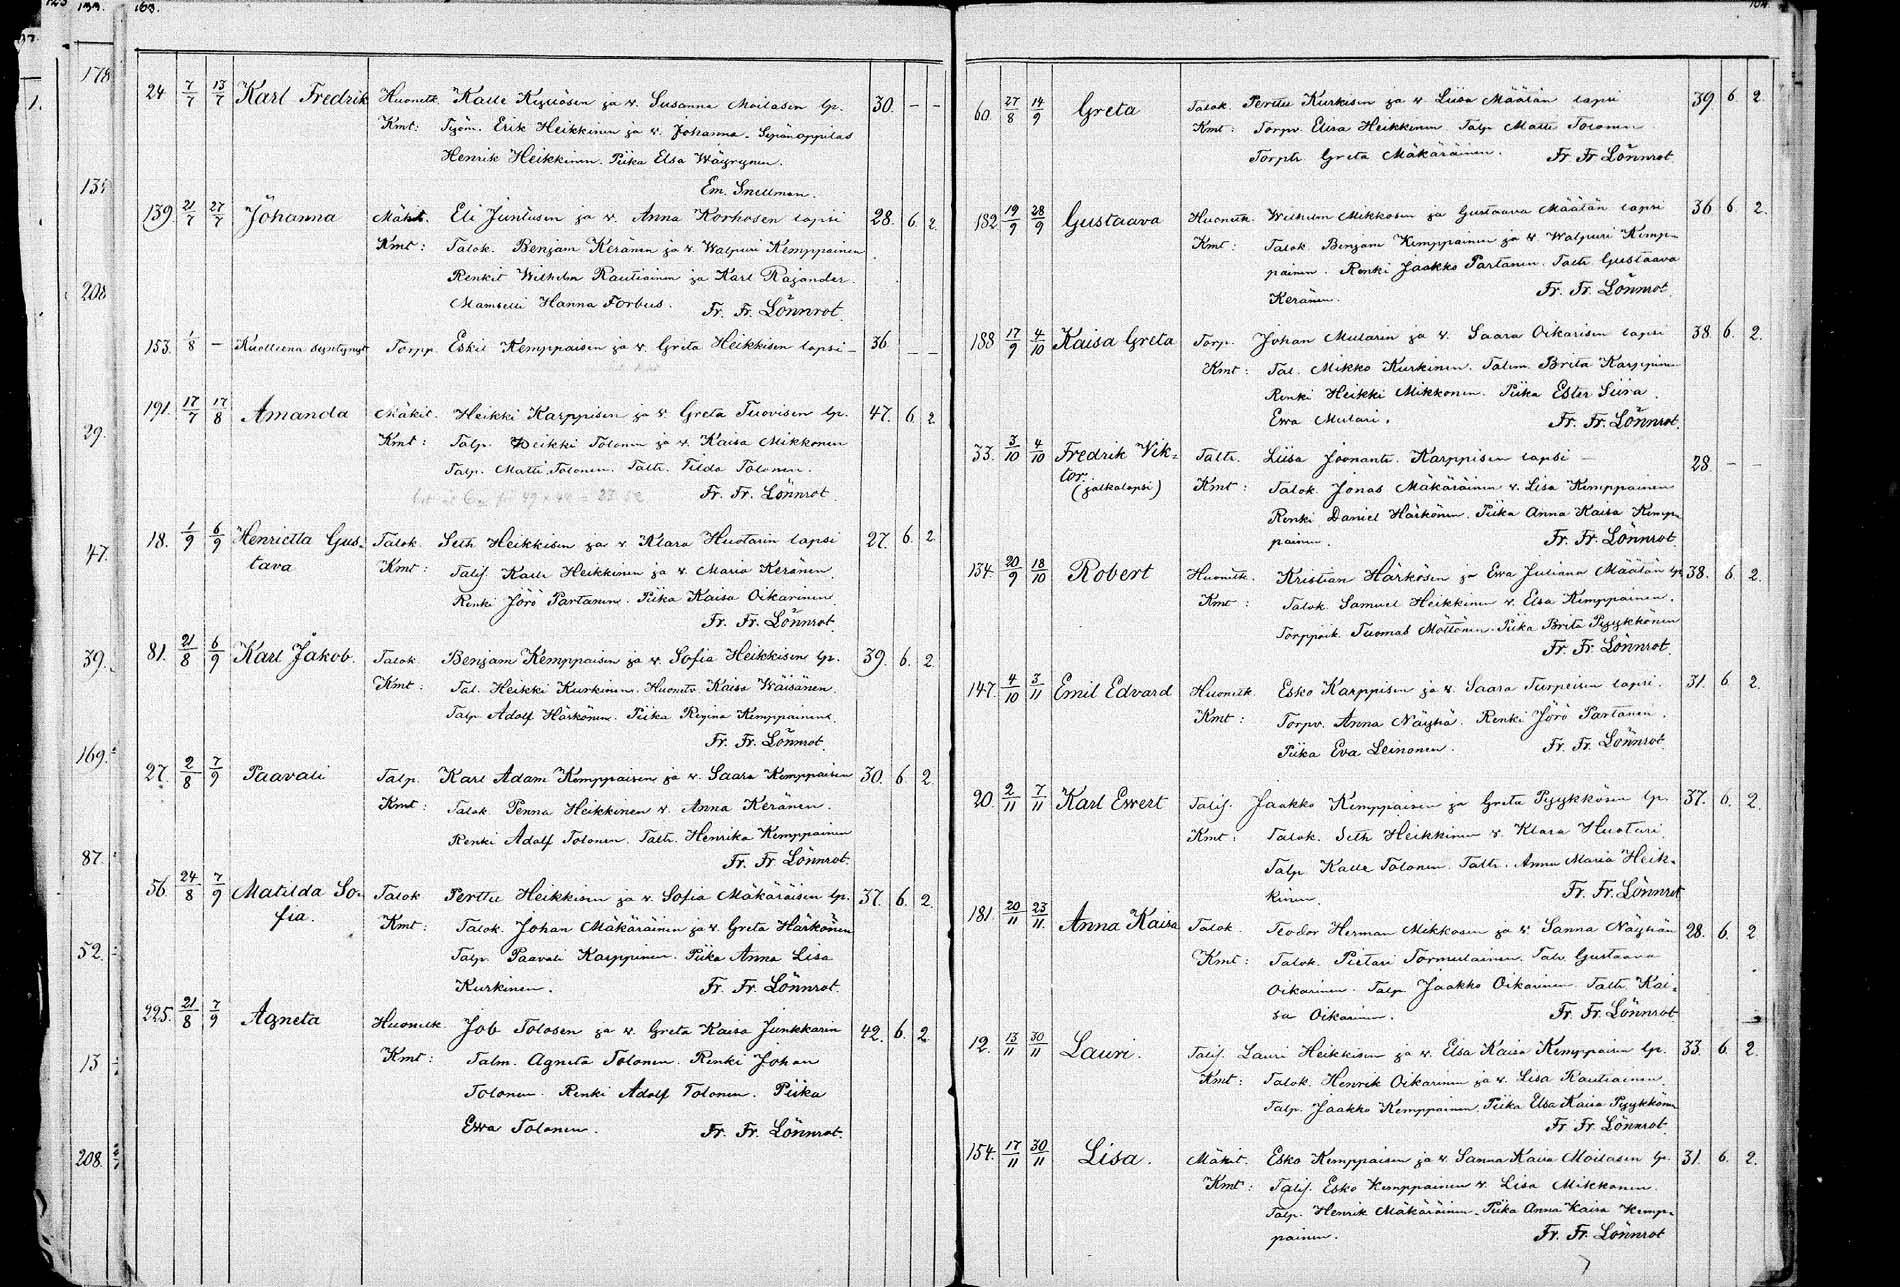 133.
163.
178
135
208
29.
47.
39.
169.
87.
52.
13
208.
24 7/7 13/7 Karl Fredrik Huonetk. Kalle Kyllösen ja v. Susanna Moilasen lp. 30. – –
Kmt: Erik Heikkinen ja v. Johanna. Sepänoppilas
Henrik Heikkinen. Piika Elsa Wäyrynen.
Em. Snellman.
139. 21/7 27/7 Johanna Mäkit. Eli Juntusen ja v. Anna Korhosen lapsi 28. 6. 2.
Kmt: Talok. Benjam Keränen ja v. Walpuri Kemppainen
Renkit Wilhelm Rautiainen ja Karl Rajander.
Mamselli Hanna Forbus. Fr. Fr. Lönnrot.
153. 1/8 – Kuolleena syntynyt Torpp. Eskil Kemppaisen ja v. Greta Heikkisen lapsi – 36 – –
191. 17/7 17/8 Amanda Mäkit. Heikki Karppisen ja v. Greta Tuovisen lp. 47. 6. 2.
Kmt: Talp. Heikki Tolonen ja v. Kaisa Mikkonen
Talp. Matti Tolonen. Taltr. Tilda Tolonen.
Fr. Fr. Lönnrot.
18. 1/9 6/9 Henrietta Gus- Talok. Seth Heikkisen ja v. Klara Huotarin lapsi 27. 6. 2.
tava Kmt: Talij. Kalle Heikkinen ja v. Maria Keränen.
Renki Jörö Partanen. Piika Kaisa Oikarinen.
Fr. Fr. Lönnrot.
81. 21/8 6/9 Karl Jakob. Talok. Benjam Kemppaisen ja v. Sofia Heikkisen lp. 39. 6. 2.
Kmt: Tal. Heikki Kurkinen. Huonetv. Kaisa Wäisänen.
Talp. Adolf Härkönen. Piika Regina Kemppainen.
Fr. Fr. Lönnrot.
27. 2/8 7/9 Paavali Talp. Karl Adam Kemppaisen ja v. Saara Kemppaisen 30. 6. 2.
Kmt: Talok. Penna Heikkinen v. Anna Keränen.
Renki Adolf Tolonen. Taltr. Henrika Kemppainen
Fr. Fr. Lönnrot.
56. 24/8 7/9 Matilda So- Talok. Perttu Heikkisen ja v. Sofia Mäkäräisen lp. 37. 6. 2.
fia. Kmt: Talok. Johan Mäkäräinen ja v. Greta Härkönen
Talp. Paavali Karppinen. Piika Anna Lisa
Kurkinen. Fr. Fr. Lönnrot.
225. 21/8 7/9 Agneta Huonetk. Job Tolosen ja v. Greta Kaisa Junkkarin 42. 6. 2.
Kmt: Talm. Agneta Tolonen. Renki Johan
Tolonen. Renki Adolf Tolonen. Piika
Ewa Tolonen. Fr. Fr. Lönnrot.
164.
60. 27/8 14/9 Greta Talok. Perttu Kurkisen ja v. Liisa Määtän lapsi 39. 6. 2.
Kmt: Torpv. Elisa Heikkinen. Talp. Matti Tolonen
Torptr. Greta Mäkäräinen. Fr. Fr. Lönnrot.
182. 19/9 28/9 Gustaava Huonetk. Wilhelm Mikkosen ja Gustaava Määtän lapsi 36 6 2.
Kmt: Talok. Benjam Kemppainen ja v. Walpuri Kemp-
painen. Renki Jaakko Partanen. Taltr. Gustaava
Keränen. Fr. Fr. Lönnrot.
188 17/9 4/10 Kaisa Greta Torp. Johan Mularin ja v. Saara Oikarisen lapsi 38. 6. 2.
Kmt: Tal. Mikko Kurkinen. Talem. Brita Karppinen
Renki Heikki Mikkonen. Piika Ester Siira.
Ewa Mulari. Fr. Fr. Lönnrot.
33. 3/10 4/10 Fredrik Vik- Taltr. Liisa Joonantr. Karppisen lapsi – 28. – –
tor.
(jalkalapsi) Kmt: Talok. Jonas Mäkäräinen v. Lisa Kemppainen
Renki Daniel Härkönen. Piika Anna Kaisa Kemp-
painen. Fr. Fr. Lönnrot.
134. 20/9 18/10 Robert Huonetk. Kristian Härkösen ja Ewa Juliana Määtän lp. 38. 6. 2.
Kmt: Talok. Samuel Heikkinen v. Elsa Kemppainen.
Torppoik. Tuomas Möttönen. Piika Brita Pyykkönen
Fr. Fr. Lönnrot.
147. 4/10 3/11 Emil Edvard Huonetk. Esko Karppisen ja v. Saara Turpeisen lapsi. 31. 6. 2.
Kmt: Torpv. Anna Näyhä. Renki Jörö Partanen.
Piika Eva Leinonen. Fr. Fr. Lönnrot.
20. 2/11 7/11 Karl Ewert Talij. Jaakko Kemppaisen ja Greta Pyykkösen lp. 37. 6. 2.
Kmt: Talok. Seth Heikkinen v. Klara Huotari
Talp. Kalle Tolonen. Taltr. Anna Maria Heik-
kinen. Fr. Fr. Lönnrot
181. 20/11 23/11 Anna Kaisa Talok. Teodor Herman Mikkosen ja v. Sanna Näyhän 28. 6. 2
Kmt: Talok. Pietari Tormulainen. Talv. Gustaava
Oikarinen. Talp. Jaakko Oikarinen. Taltr. Kai-
sa Oikarinen. Fr. Fr. Lönnrot
12. 13/11 30/11 Lauri. Talij. Lauri Heikkisen ja v. Elsa Kaisa Kemppaisen lp. 33. 6. 2.
Kmt: Talok. Henrik Oikarinen ja v. Lisa Rautiainen.
Talp. Jaakko Kemppainen. Piika Elsa Kaisa Pyykkönen
Fr. Fr. Lönnrot.
154. 17/11 30/11 Lisa. Mäkit. Esko Kemppaisen ja v. Sanna Kaisa Moilasen lp. 31. 6. 2.
Kmt: Talij. Esko Kemppainen v. Lisa Mikkonen.
Talp. Henrik Mäkäräinen. Piika Anna Kaisa Kemp-
painen. Fr. Fr. Lönnrot